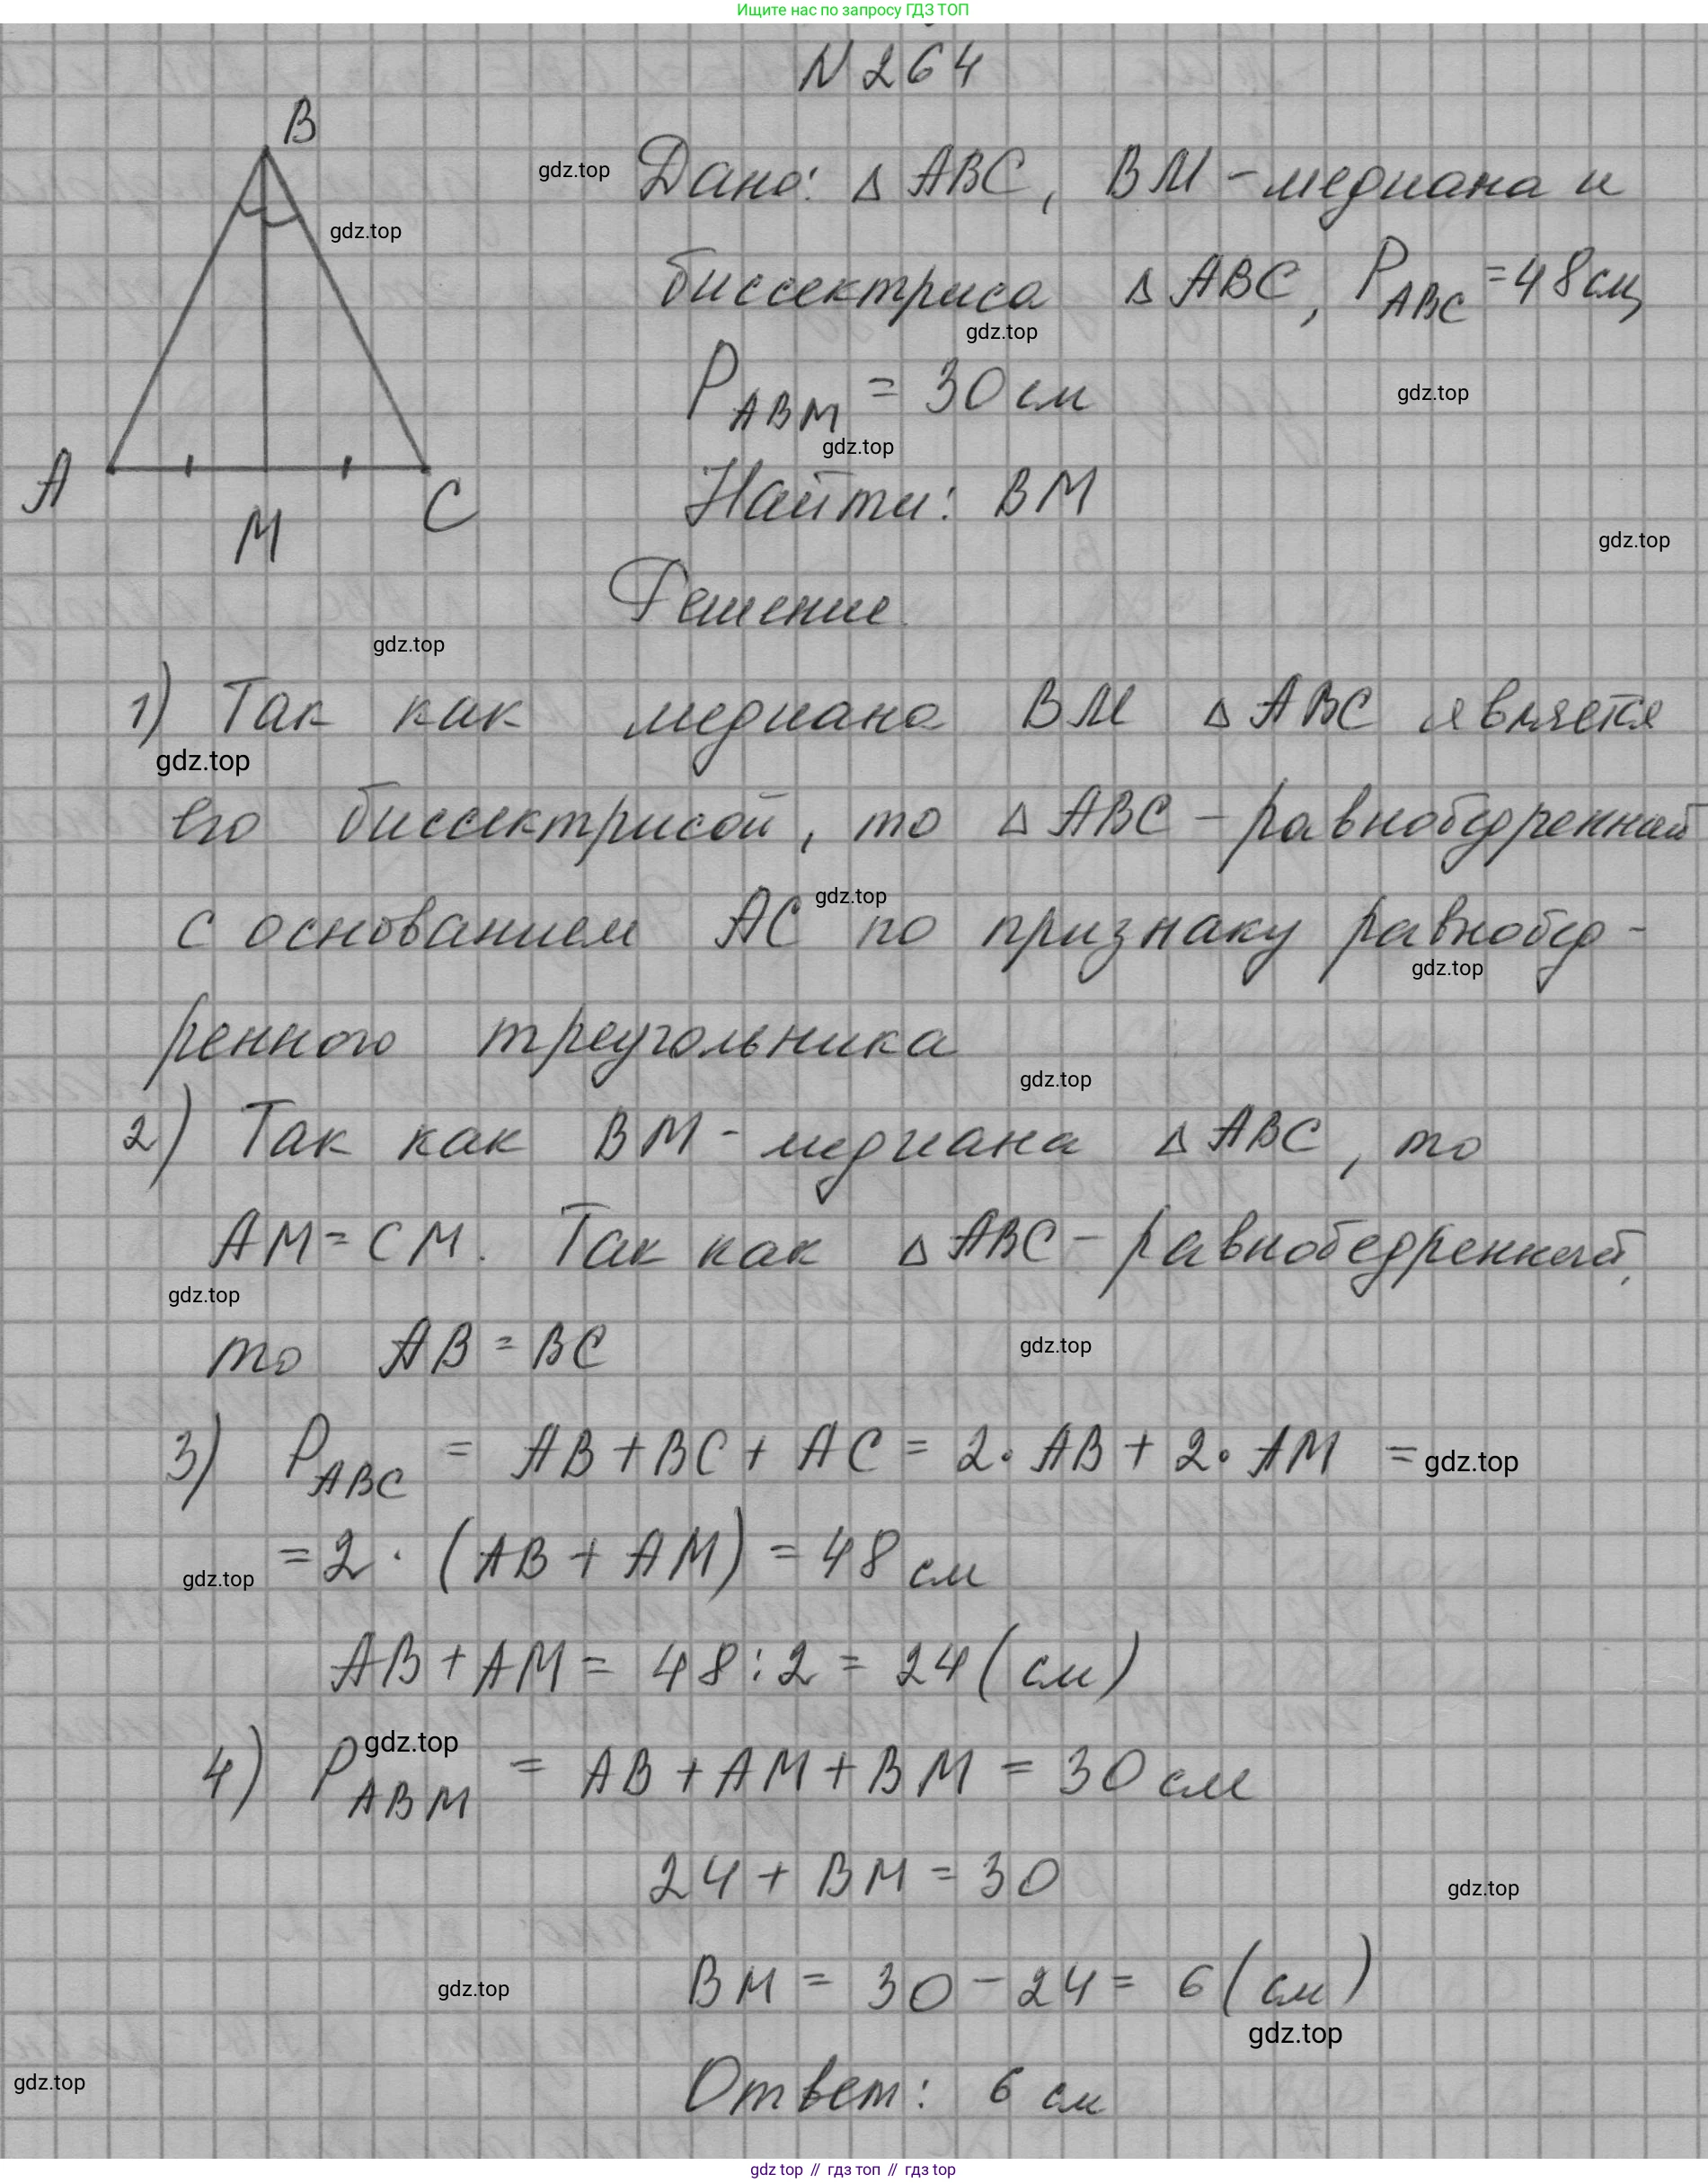 Ищите нас по запросу ГДЗ ТОП
N 264
B
gdz.top
A
M
C
gdz.top
Дано: Δ ABC, BM - медиана и
биссектриса Δ ABC, P ABC = 48 см,
gdz.top
P ABM = 30 см
gdz.top
gdz.top
Найти: BM
gdz.top
Решение
gdz.top
1) Так как медиана BM Δ ABC является
gdz.top
его биссектрисой, то Δ ABC - равнобедренный
gdz.top
с основанием AC по признаку равнобед-
gdz.top
ренного треугольника
gdz.top
2) Так как BM - медиана Δ ABC, то
AM = CM. Так как Δ ABC - равнобедренный,
gdz.top
то AB = BC
gdz.top
3) P ABC = AB + BC + AC = 2 · AB + 2 · AM =
gdz.top
= 2 · (AB + AM) = 48 см
gdz.top
AB + AM = 48 : 2 = 24 (см)
gdz.top
4) P ABM = AB + AM + BM = 30 см
24 + BM = 30
gdz.top
BM = 30 - 24 = 6 (см)
gdz.top
gdz.top
Ответ: 6 см
gdz.top
gdz top // гдз топ // гдз top